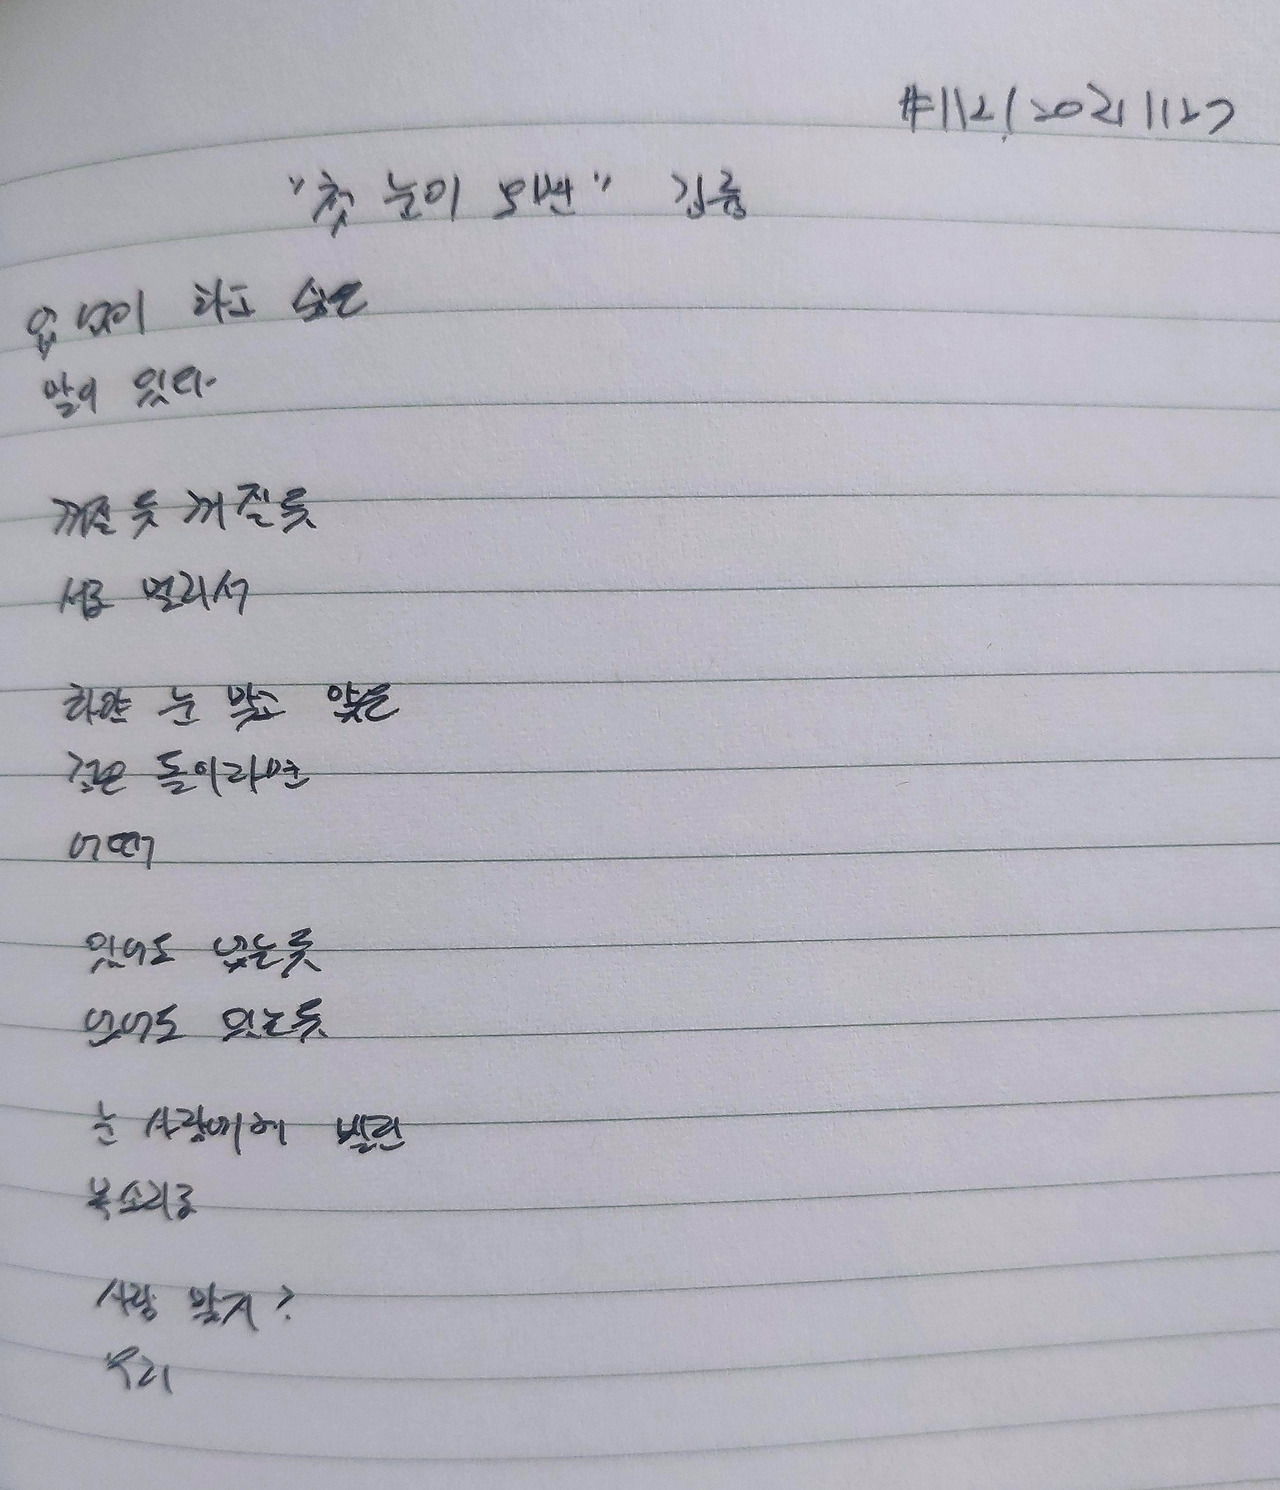 #1121 20211127
"첫 눈이 오면" 김륭
입 없이 하고 싶은
말이 있다.
꺼질 듯 꺼질듯
서로 멀리서
하얀 눈 맞고 앉은
검은 돌이라면
어때
있어도 없는듯
없어도 있는듯
눈 사람에게 빌린
목소리로
사랑 맞지?
우리